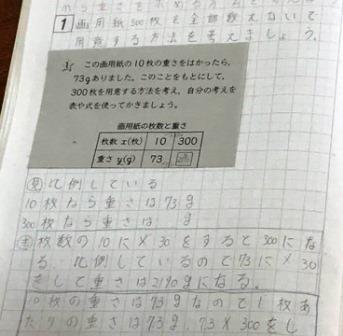 1 画用紙300枚を全部数えないで
用意する方法を考えましょう。
この画用紙の10枚の重さをはかったら、
73gありました。このことをもとにして、
300枚を用意する方法を考え、自分の考えを
表や式を使ってかきましょう。
画用紙の枚数と重さ
枚数x(枚) 10 300
重さy(g) 73
見 比例している
10枚なら重さは73g
300枚なら重さは g
枚数の10に×30をすると300にな
る。比例しているので73に×30
をして重さは2190gになる。
10枚の重さは73gなので1枚あ
たりの重さは7.3g 7.3×300をし